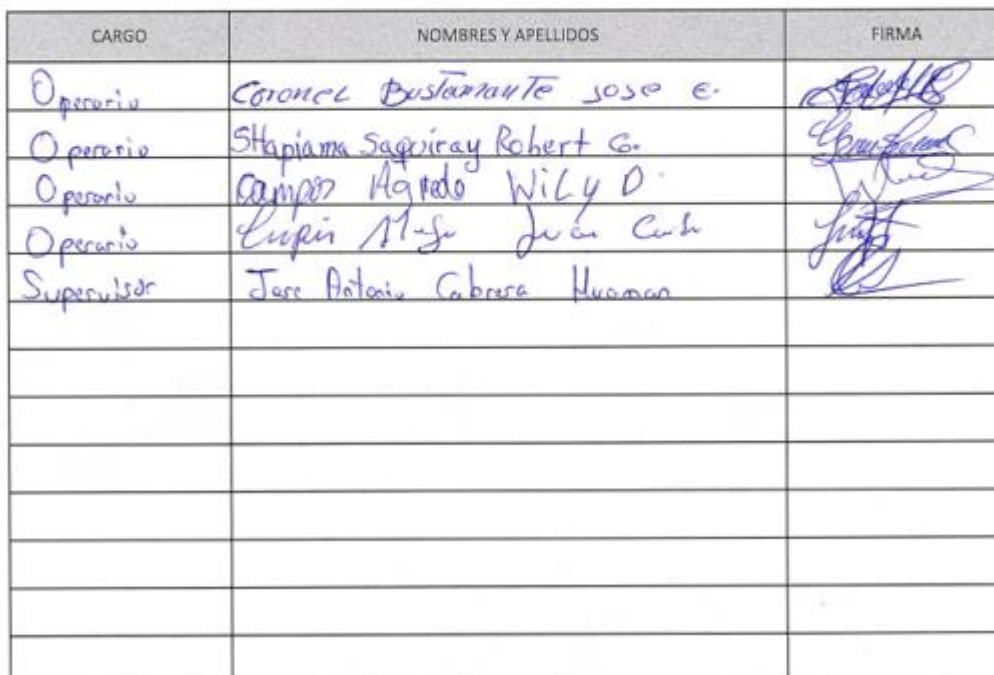 CARGO NOMBRES Y APELLIDOS FIRMA
Operario Coronel Bustamante Jose E.
Operario SHapiama Saquiray Robert G.
Operario Campos Agredo WiLy D.
Operario Juan
Supervisor Jose Antonio Cabrera Huaman